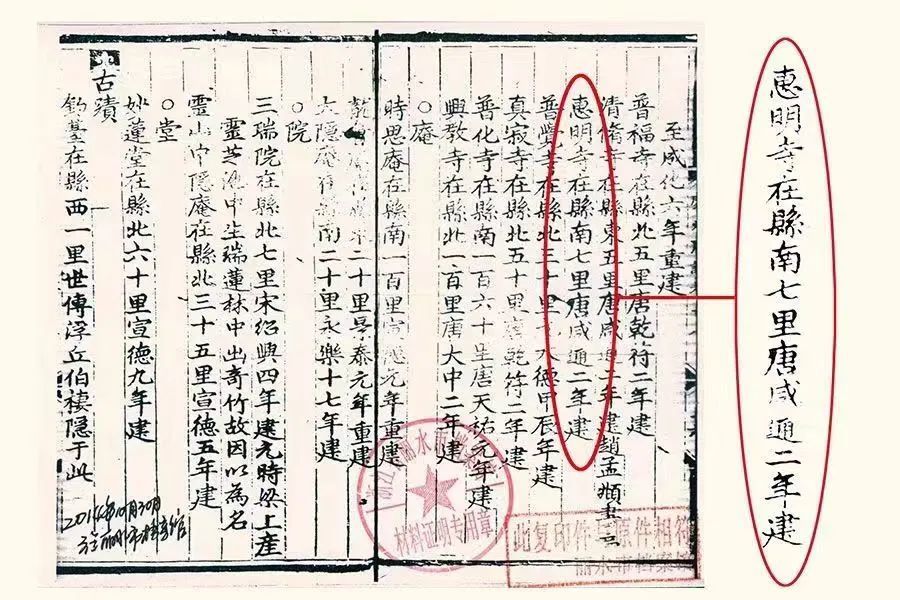 至成化六年重建
普福寺在縣北五里唐乾符二年建
清脩寺在縣東五里唐咸通二年建趙孟頫書
惠明寺在縣南七里唐咸通二年建
普覺寺在縣北三十里大德甲辰年建
真寂寺在縣北五十里唐乾符二年建
普化寺在縣南一百六十里唐天祐元年建
興教寺在縣北一百里唐大中二年建
○庵
時思庵在縣南一百里宣德元年重建
二十里景泰元年重建
大隱庵在縣南二十里永樂十七年建
○院
三瑞院在縣北七里宋紹興四年建元時梁上產
靈芝池中生瑞蓮林中出奇竹故因以為名
靈山中隱庵在縣北三十五里宣德五年建
○堂
妙蓮堂在縣北六十里宣德九年建
古蹟
釣臺在縣西一里世傳浮丘伯棲隱于此
惠明寺在縣南七里唐咸通二年建
材料证明专用章
此复印件 原件相符
丽水市档案